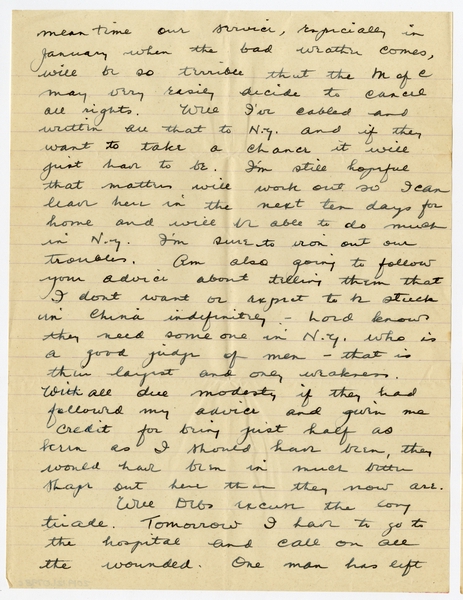 mean time our service, especially in
January when the bad weather comes,
will be so terrible that the M of C
may very easily decide to cancel
all rights. Well I've cabled and
written all that to N.Y. and if they
want to take a chance it will
just have to be. I'm still hopeful
that matters will work out so I can
leave here in the next ten days for
home and will be able to do much
in N.Y. I'm sure to iron out our
troubles. Am also going to follow
your advice about telling them that
I dont want or expect to be stuck
in China indefinitely - Lord knows
they need some one in N.Y. who is
a good judge of men - that is
their largest and only weakness.
With all due modesty if they had
followed my advice and given me
credit for being just half as
keen as I should have been, they
would have been in much better
shape out here than they now are.
Well Debs excuse the long
tirade. Tomorrow I have to go to
the hospital and call on all
the wounded. One man has left